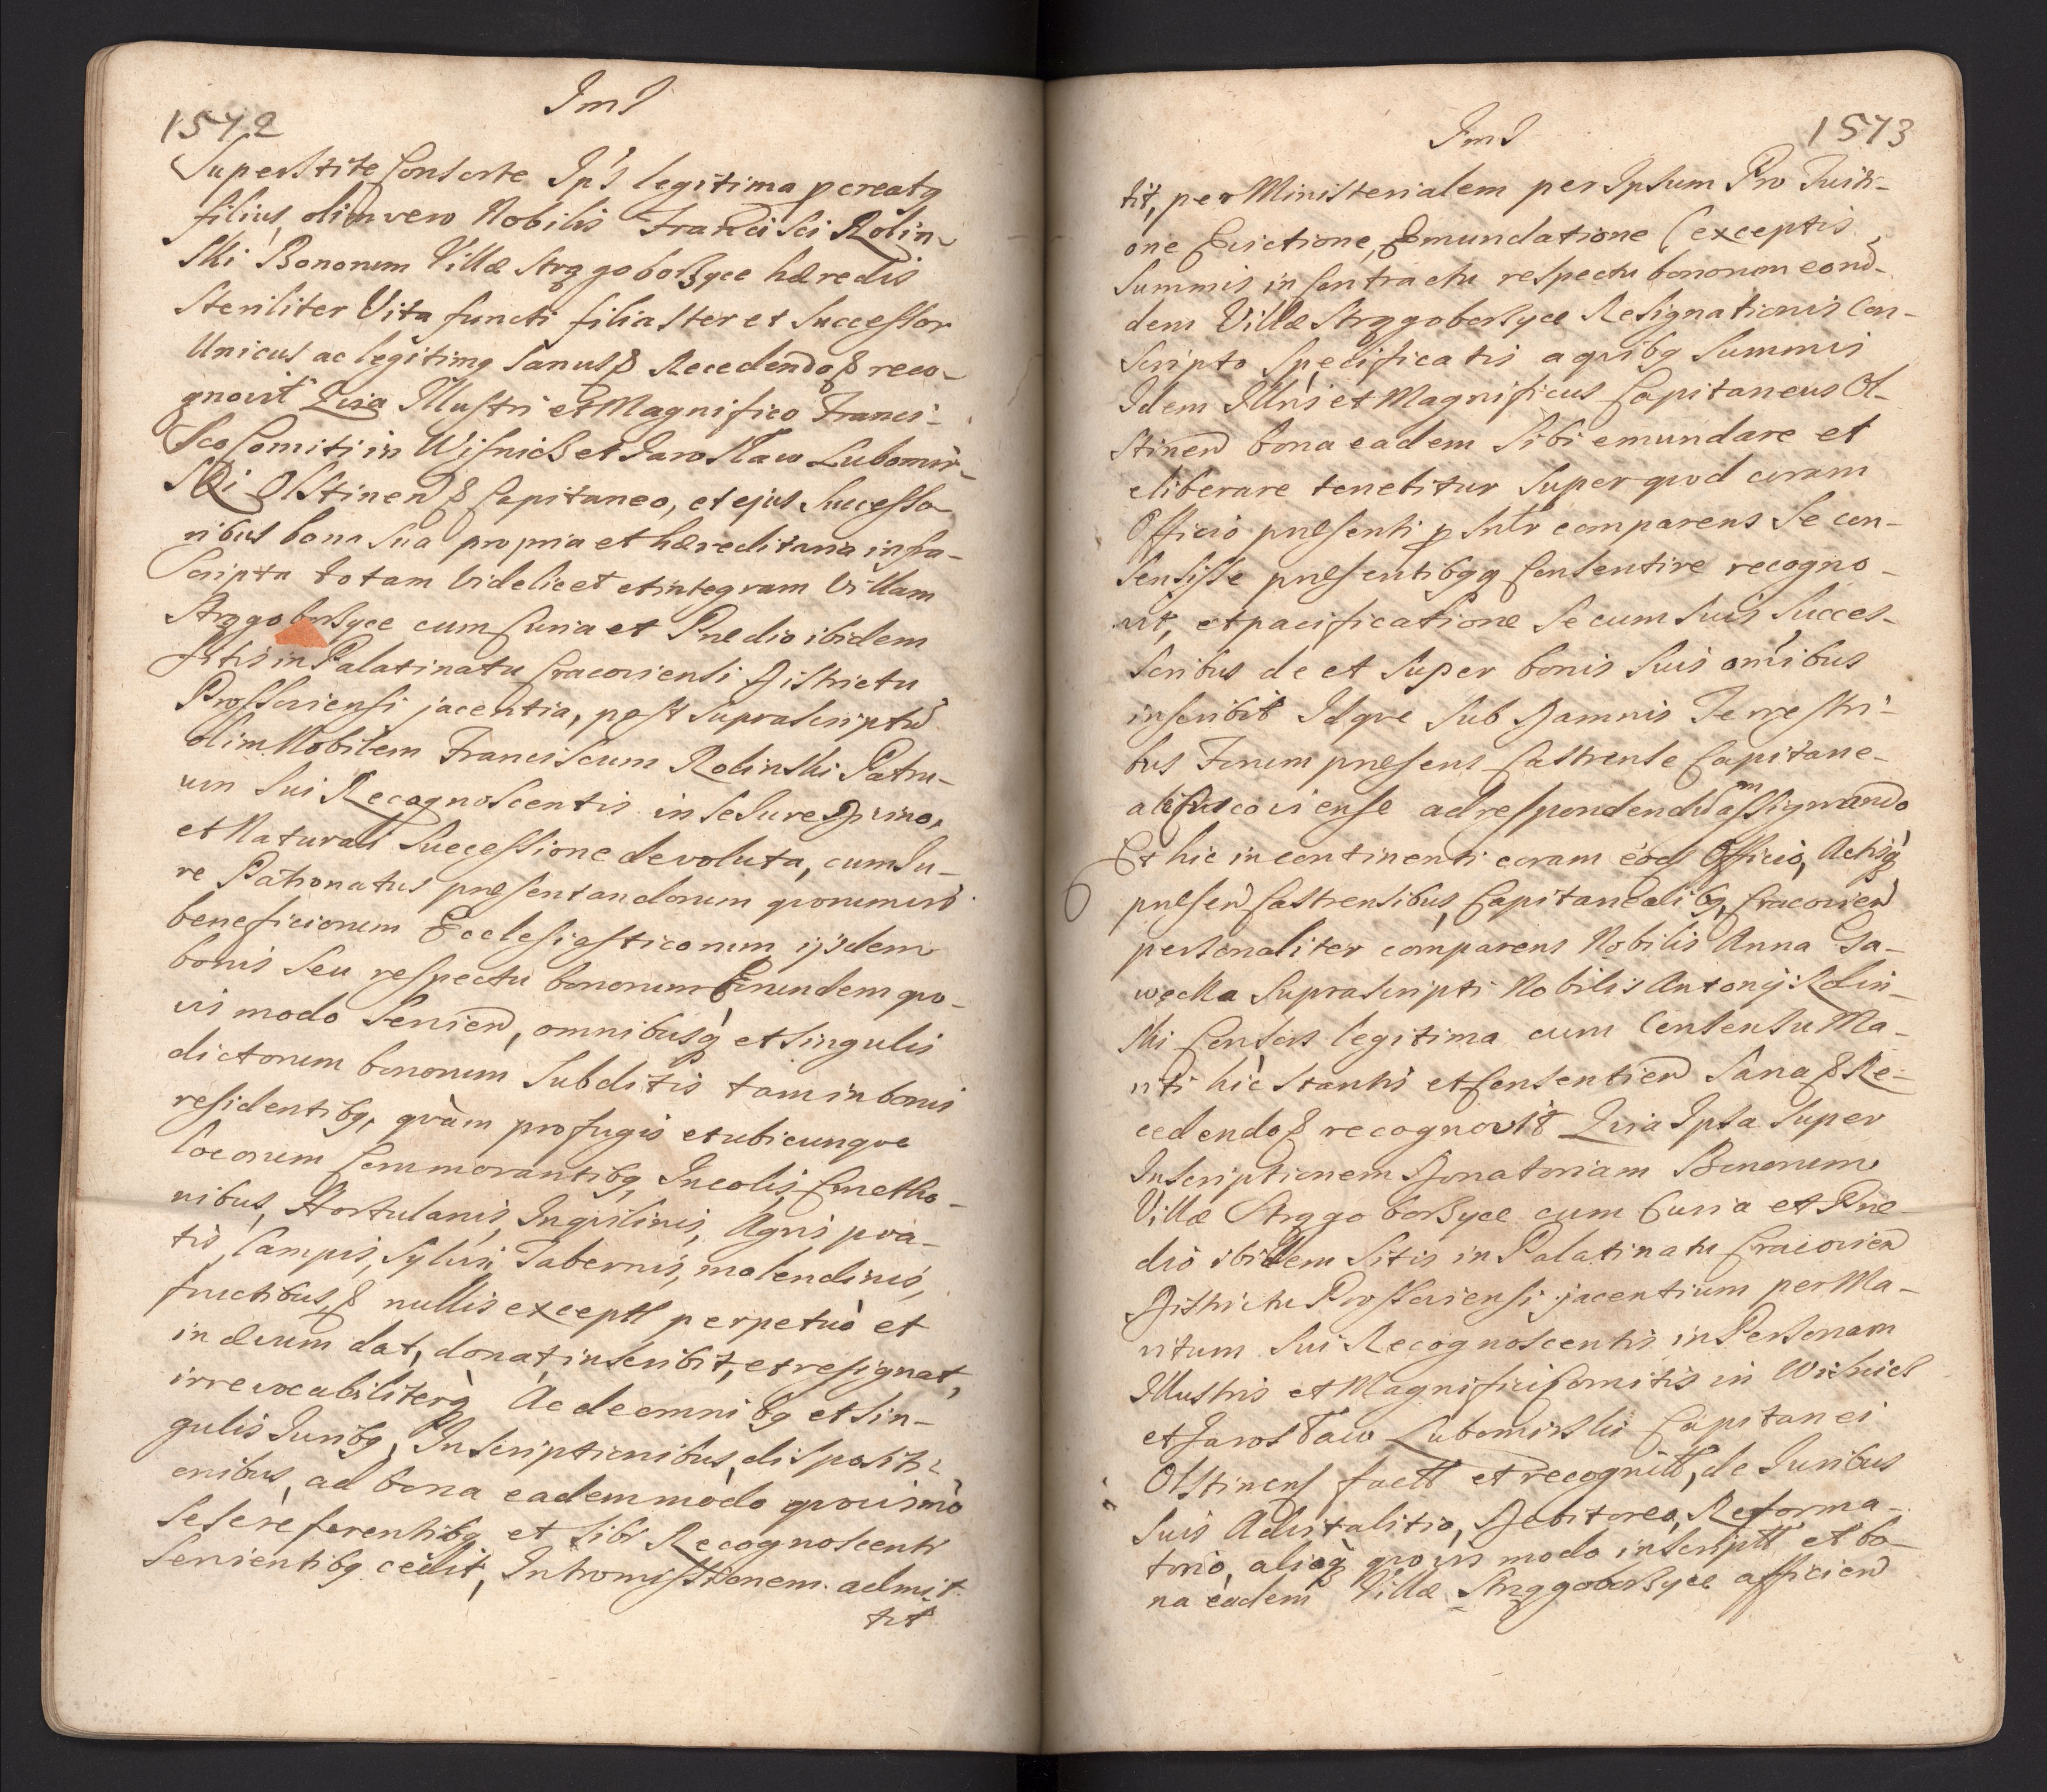 1542
ImJ
Superstite Consorte Ip's legitima pcreatq
filius, olim vero Nobilis Francisci Rolin-
ski Bonorum Villæ Strzgoborzyce hæredis
steriliter Vita functi filiaster et Successor
Unicus ac legitimq Sanus& Recedendo& reco-
gnovit Quia Illustri et Magnifico Franci-
sco Comiti in Wisnicz et Jarosław Lubomir-
ski Olstinen& Capitaneo, et ejus Successo
ribus bona sua propria et hæreditaria infra-
scripta totam videlicet et integram Villam
Strzgoborzyce cum Curia et Prædio ibidem
sitis in Palatinatu Cracoviensi Districtu
Prossoviensi jacentia, post suprascriptū
olim Nobilem Franciscum Rolinski Patru-
um sui Recognoscentis in se Jure Divino,
et Naturali Successione devoluta, cum Ju-
re Patronatus præsentandorum quorumvis
beneficiorum Ecclesiasticorum ijsdem
bonis seu respectu bonorum Eorundem quo-
vis modo servien, omnibusq et singulis
dictorum bonorum Subditis tam in bonis
residentibq, quàm profugis et ubicunque
locorum Commorantibq, Incolis, Cmetho-
nibus, Hortulanis, Inquilinis, Agris pra-
tis, Campis, Sylvis, Tabernis, molendinis,
fructibus,& nullis exceptt perpetuò et
in ævum dat, donat, inscribit, et resignat,
irrevocabiliterq Ac de omnibq et sin-
gulis Juribq, Inscriptionibus, dispositi-
onibus, ad bona eadem modo quovismo
sese referentibq et sibi Recognoscenti
servientibq cedit, Intromissionem admit
tit
ImJ
1543
tit, per Ministerialem per Ipsum Pro Tuiti-
one Evictione, Emundatione (exceptis
summis in Contractu respectu bonorum eorūn-
dem Villæ Strzgoborzyce Resignationis Con-
scripto specificatis a quibq summis
Idem Illris et Magnificus Capitaneus Ol-
stinen bona eadem sibi emundare et
eliberare tenebitur super quod coram
Officio præsenti p Inlr comparens se con-
sensisse præsentibqq Consentire recogno-
vit, et pacificatione se cum suis Succes-
soribus de et super bonis suis omībus
inscribit Idque sub Damnis Terrestri-
bus Forum præsens Castrense Capitane-
ale Cracoviense ad respondendū assignando
Et hic in continenti coram eod Officio, Actisq
præsen Castrensibus, Capitanealibq, Cracovien
personaliter comparens Nobilis Anna Ga-
węcka Suprascripti Nobilis Antonij Rolin-
ski Consors legitima cum Consensu Ma-
riti hic stantis et Consentien Sana& Re-
cedendo& recognovit Quia Ipsa super
Inscriptionem Donatoriam Bonorum
Villæ Strzgoborzyce cum Curia et Præ-
dio ibidem sitis in Palatinatu Cracovien
Districtu Prossoviensi jacentium per Ma-
ritum sui Recognoscentis in Personam
Illustris et Magnifici Comitis in Wisnicz
et Jarosław Lubomirski Capitanei
Olstinens factt et recognitt, de Juribus
suis Advitalitio, Debitoreo, Reforma-
torio, alijsq quovis modo inscriptt et bo-
na eadem Villæ Strzgoborzyce afficien